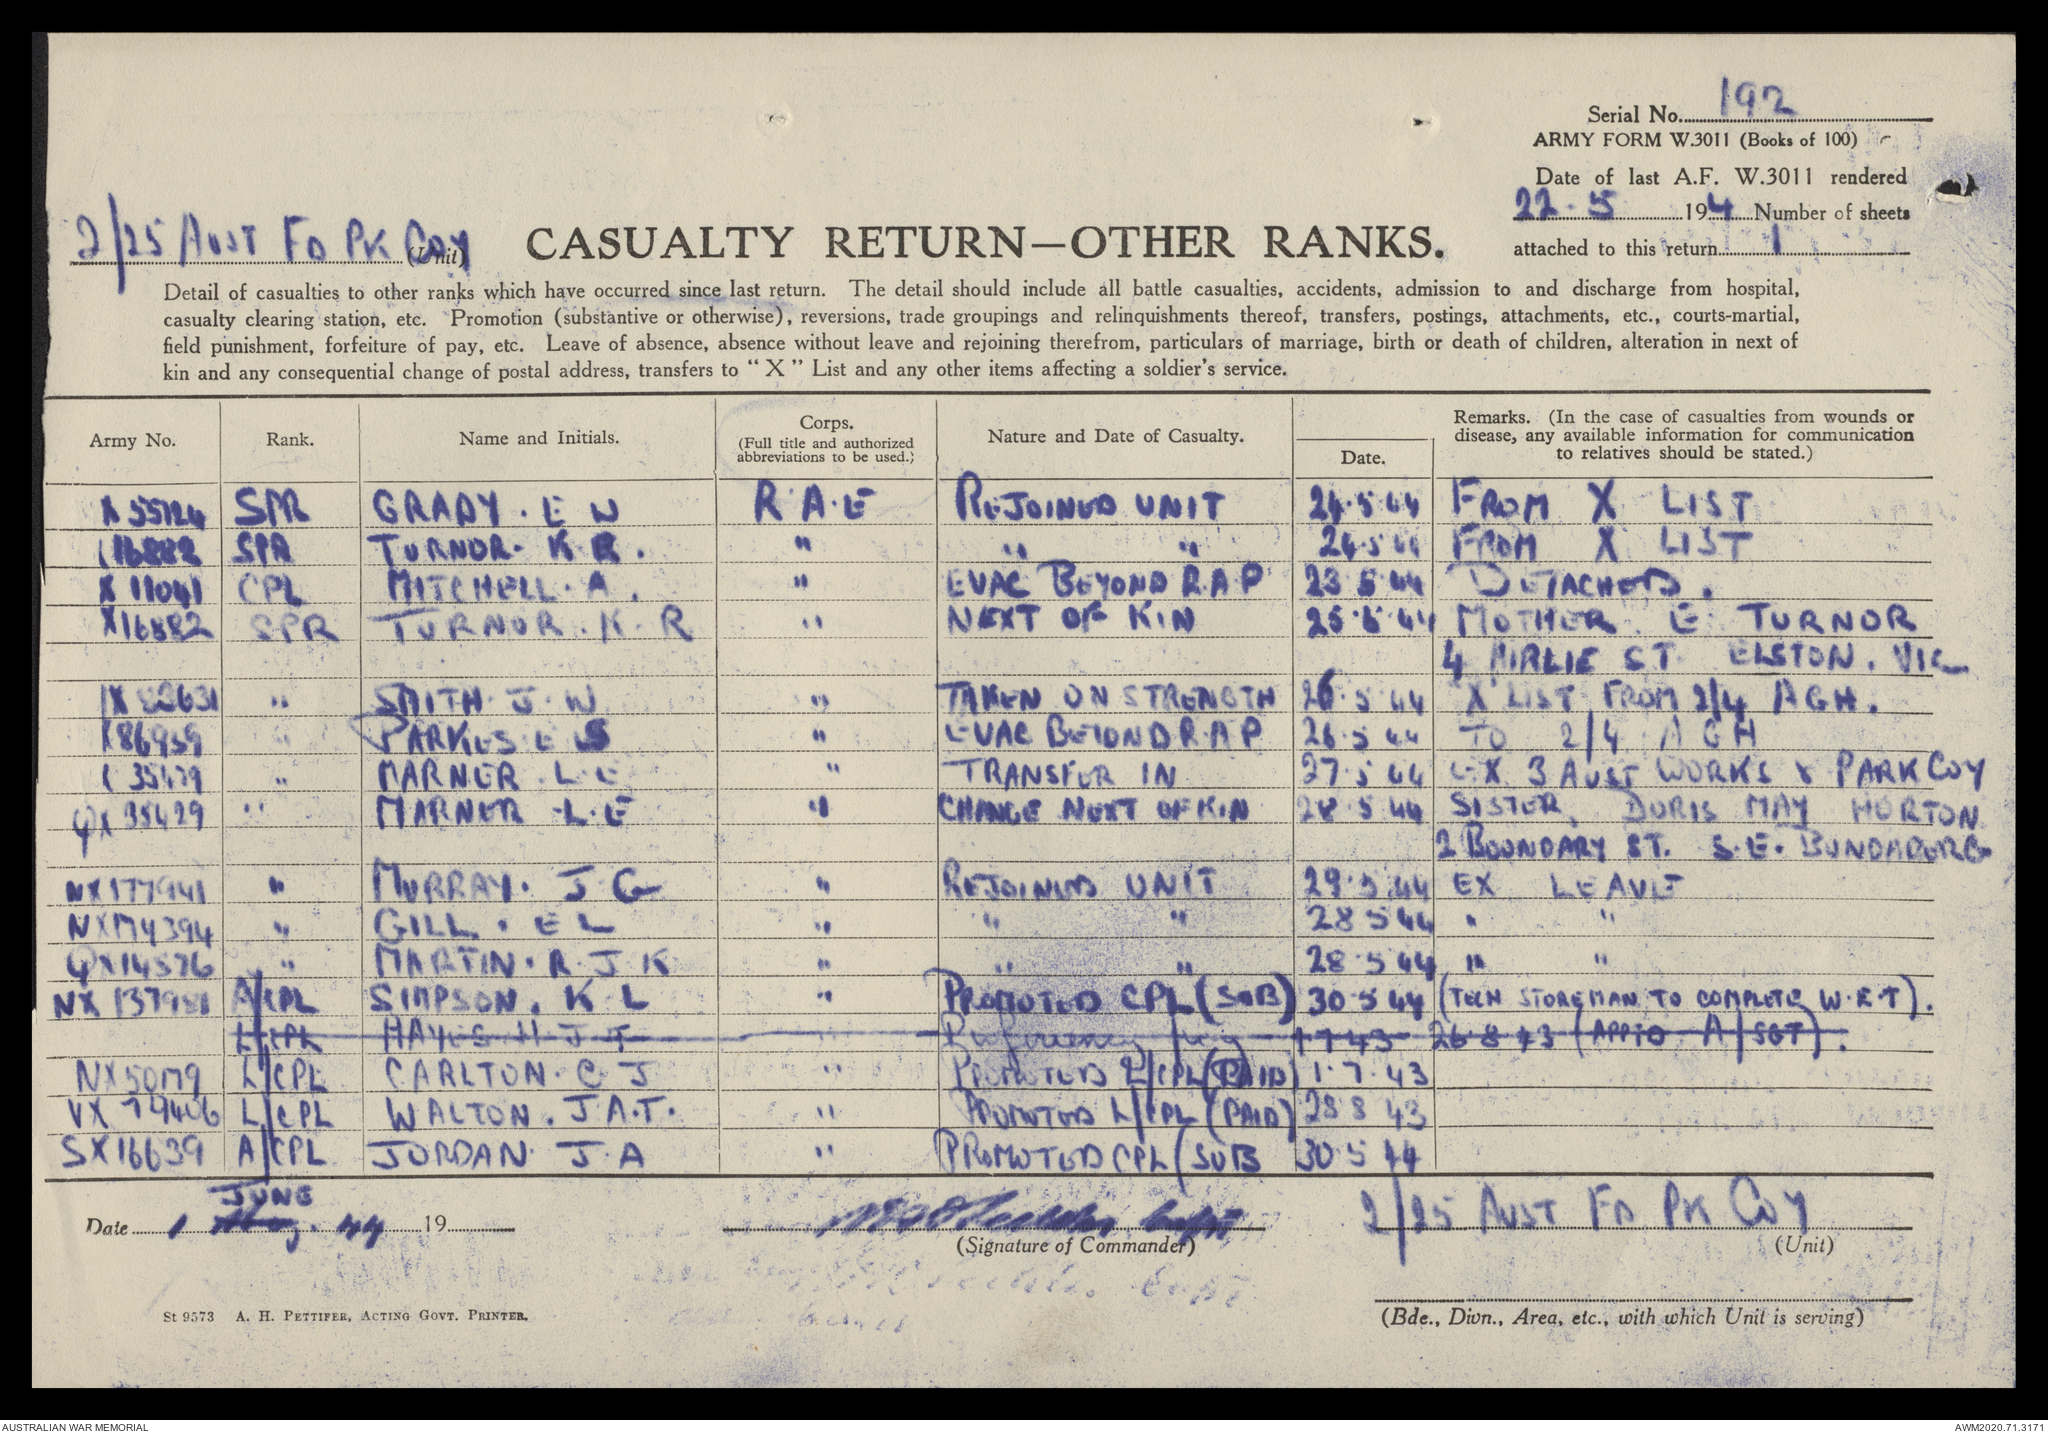 Serial No. 192
ARMY FORM W.3011 (Books of 100)
Date of last A.F. W.3011 rendered
22.5 194 Number of sheets
attached to this return 1
2/25 AUST FD PK COY (Unit)
CASUALTY RETURN—OTHER RANKS.
Detail of casualties to other ranks which have occurred since last return. The detail should include all battle casualties, accidents, admission to and discharge from hospital,
casualty clearing station, etc. Promotion (substantive or otherwise), reversions, trade groupings and relinquishments thereof, transfers, postings, attachments, etc., courts-martial,
field punishment, forfeiture of pay, etc. Leave of absence, absence without leave and rejoining therefrom, particulars of marriage, birth or death of children, alteration in next of
kin and any consequential change of postal address, transfers to "X" List and any other items affecting a soldier's service.
Army No. Rank. Name and Initials. Corps. (Full title and authorized abbreviations to be used.) Nature and Date of Casualty. Date. Remarks. (In the case of casualties from wounds or disease, any available information for communication to relatives should be stated.)
X 55124 SPR GRADY. E W R.A.E REJOINED UNIT 24.5.44 FROM X LIST
16882 SPR TURNOR. K R. " " " 24.5.44 FROM X LIST
X 11041 CPL MITCHELL. A. " EVAC BEYOND R.A.P 23 5 44 DETACHED.
X16882 SPR TURNOR. K. R " NEXT OF KIN 25.5.44 MOTHER E TURNOR
4 AIRLIE ST. ELSTON. VIC
X 82631 " SMITH. J. W " TAKEN ON STRENGTH 26.5.44 X LIST FROM 2/4 AGH.
X86959 " PARKES. E S " EVAC BEYOND R.A.P 26.5 44 TO 2/4 AGH
35429 " MARNER. L. E " TRANSFER IN 27.5 44 EX 3 AUST WORKS & PARK COY
QX 35429 " MARNER L.E " CHANGE NEXT OF KIN 28.5 44 SISTER, DORIS MAY HORTON
2 BOUNDARY ST. S.E. BUNDABERG
NX177941 " MURRAY. J G " REJOINED UNIT 29.5.44 EX LEAVE
NX174394 " GILL. E L " " " 28 5 44 " "
QX14576 " MARTIN. R. J K " " " 28.5 44 " "
NX 137981 A/CPL SIMPSON. K L " PROMOTED CPL (SUB) 30.5 44 (TECH STOREMAN TO COMPLETE W.E.T).
L/CPL HAYES H J T " 1 7 43 26.8 43 (APPTD A/SGT).
NX50179 L/CPL CARLTON. C J " PROMOTED L/CPL (PAID) 1.7.43
VX 79406 L/CPL WALTON. J A.T. " PROMOTED L/CPL (PAID) 28 8 43
SX16639 A/CPL JORDAN. J. A " PROMOTED CPL (SUB 30.5 44
JUNE
Date 1 Aug. 44 19
(Signature of Commander)
2/25 AUST FD PK COY
(Unit)
St 9573 A. H. PETTIFER, ACTING GOVT. PRINTER.
(Bde., Divn., Area, etc., with which Unit is serving)
AUSTRALIAN WAR MEMORIAL
AWM2020.71.3171